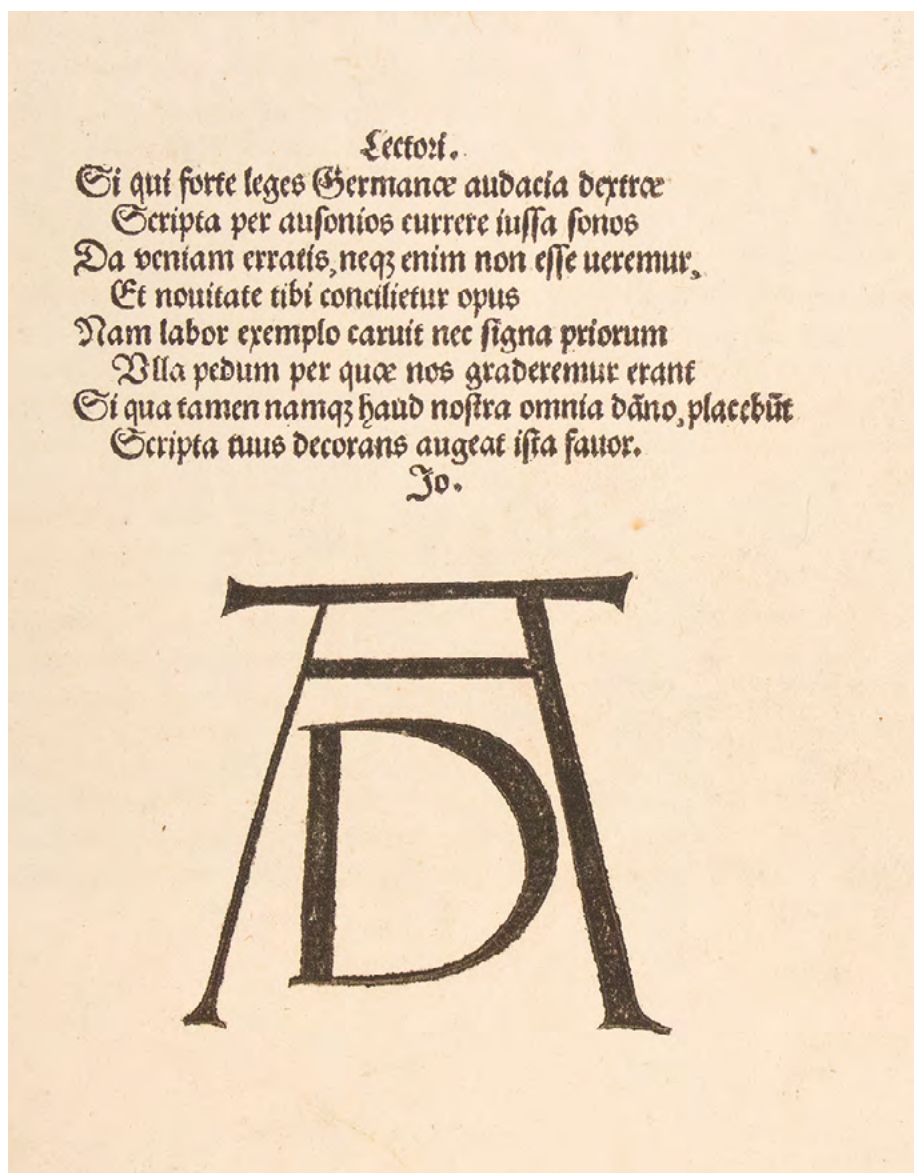 Lectori.
Si qui forte leges Germanæ audacia dextræ
Scripta per ausonios currere iussa sonos
Da veniam erratis, neqꝫ enim non esse ueremur,
Et nouitate tibi concilietur opus
Nam labor exemplo caruit nec signa priorum
Vlla pedum per quæ nos graderemur erant
Si qua tamen namqꝫ haud nostra omnia dāno, placebūt
Scripta tuus decorans augeat ista fauor.
Jo.
AD